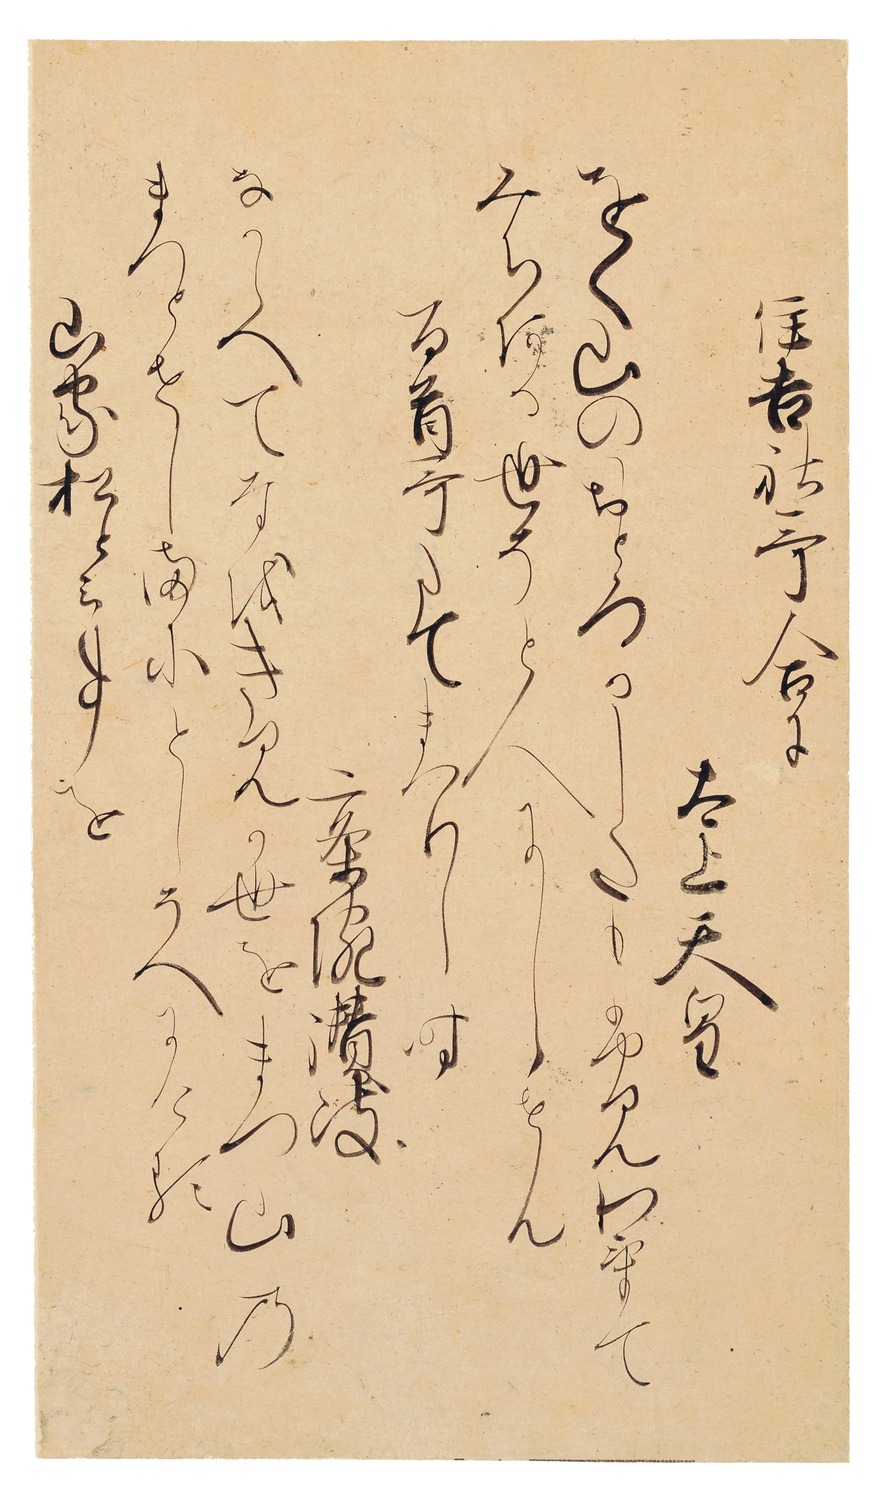 住吉哥合に
太上天皇
をく山のおとろかしたもふみわけて
みちある世そと人にしらせん
百首哥たてまつりし時
二条院讃岐
なからへてなをきみか世をまつ山の
まつとせしまにとしそへにける
山家松と云事を